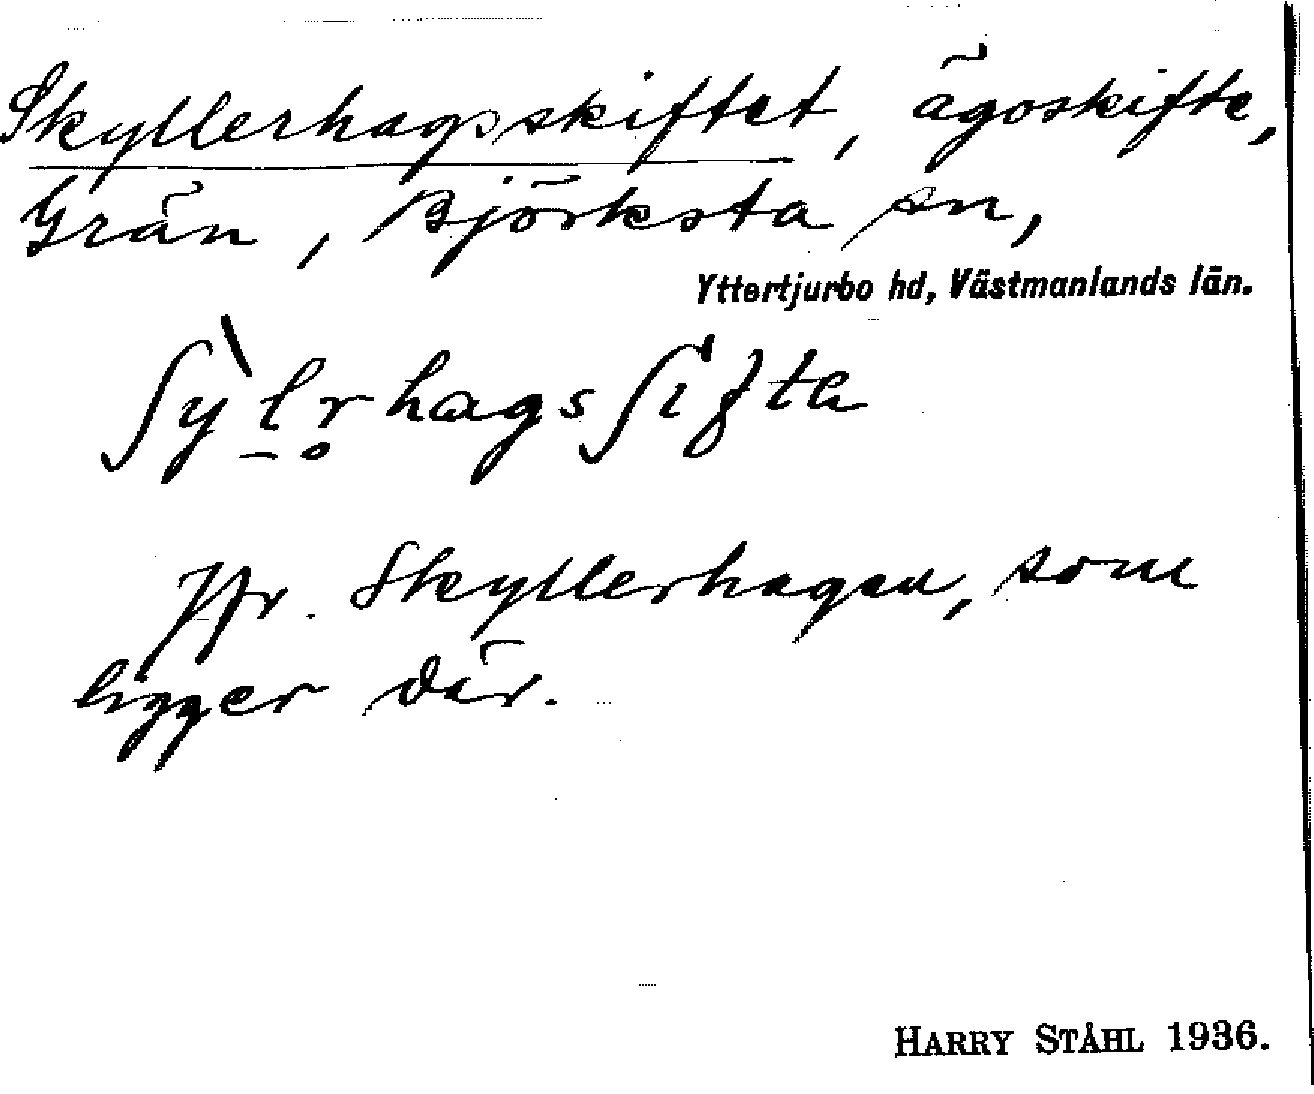 Skyllerhagsskiftet, ägoskifte,
Grän, Björksta sn,
Yttertjurbo hd, Västmanlands län.
ʃỳl̠r̥hagsʃiftɐ
Jfr. Skyllerhagen, som
ligger där.
HARRY STÅHL 1936.